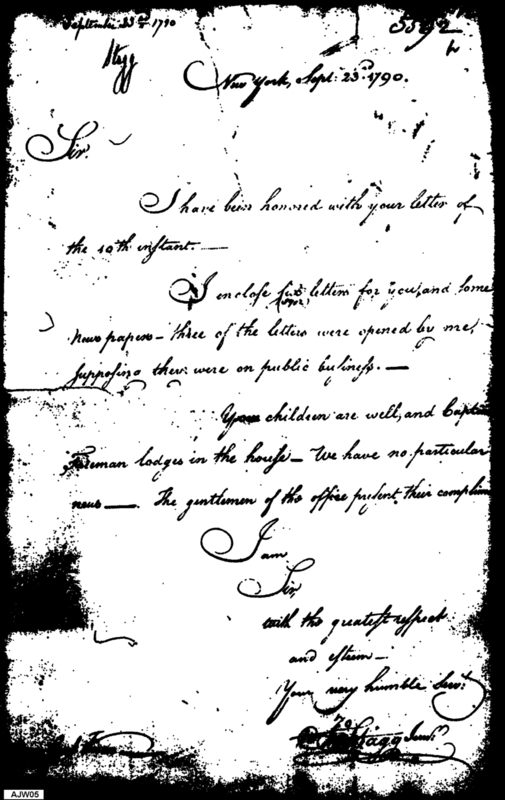 September 23d 1790
Stagg
5592
New York, Sept: 23d. 1790.
Sir.
I have been honored with your letter of
the 10th instant.—
I enclose six letters for you, and some
news papers— three of the letters were opened by me,
supposing they were on public business.—
Your children are well, and Captain
Freeman lodges in the house— We have no particular
news—. The gentlemen of the office present their complim
I am
Sir
with the greatest respect
and esteem—
Your very humble Servt:
Jno Stagg Junr.
AJW05